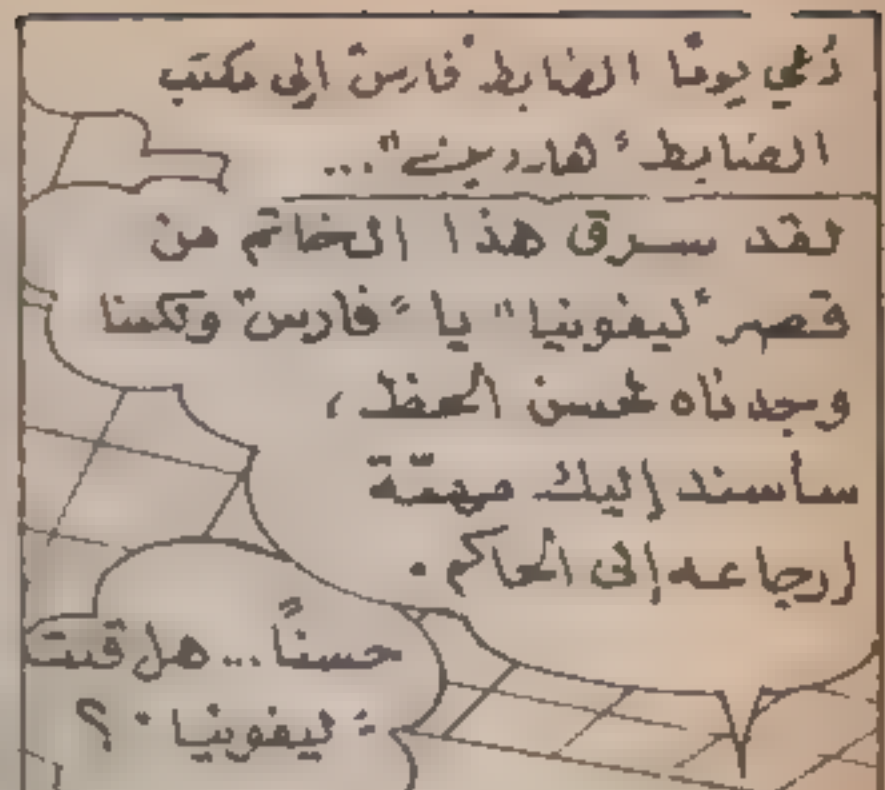 دُعي يومًا الضابط "فارس" إلى مكتب
الضابط "هارديني"...
لقد سرق هذا الخاتم من
قصر "ليفونيا" يا "فارس" ولكننا
وجدناه لحسن الحظ،
سأسند إليك مهمّة
إرجاعه إلى الحاكم.
حسنًا... هل قلت
"ليفونيا"؟